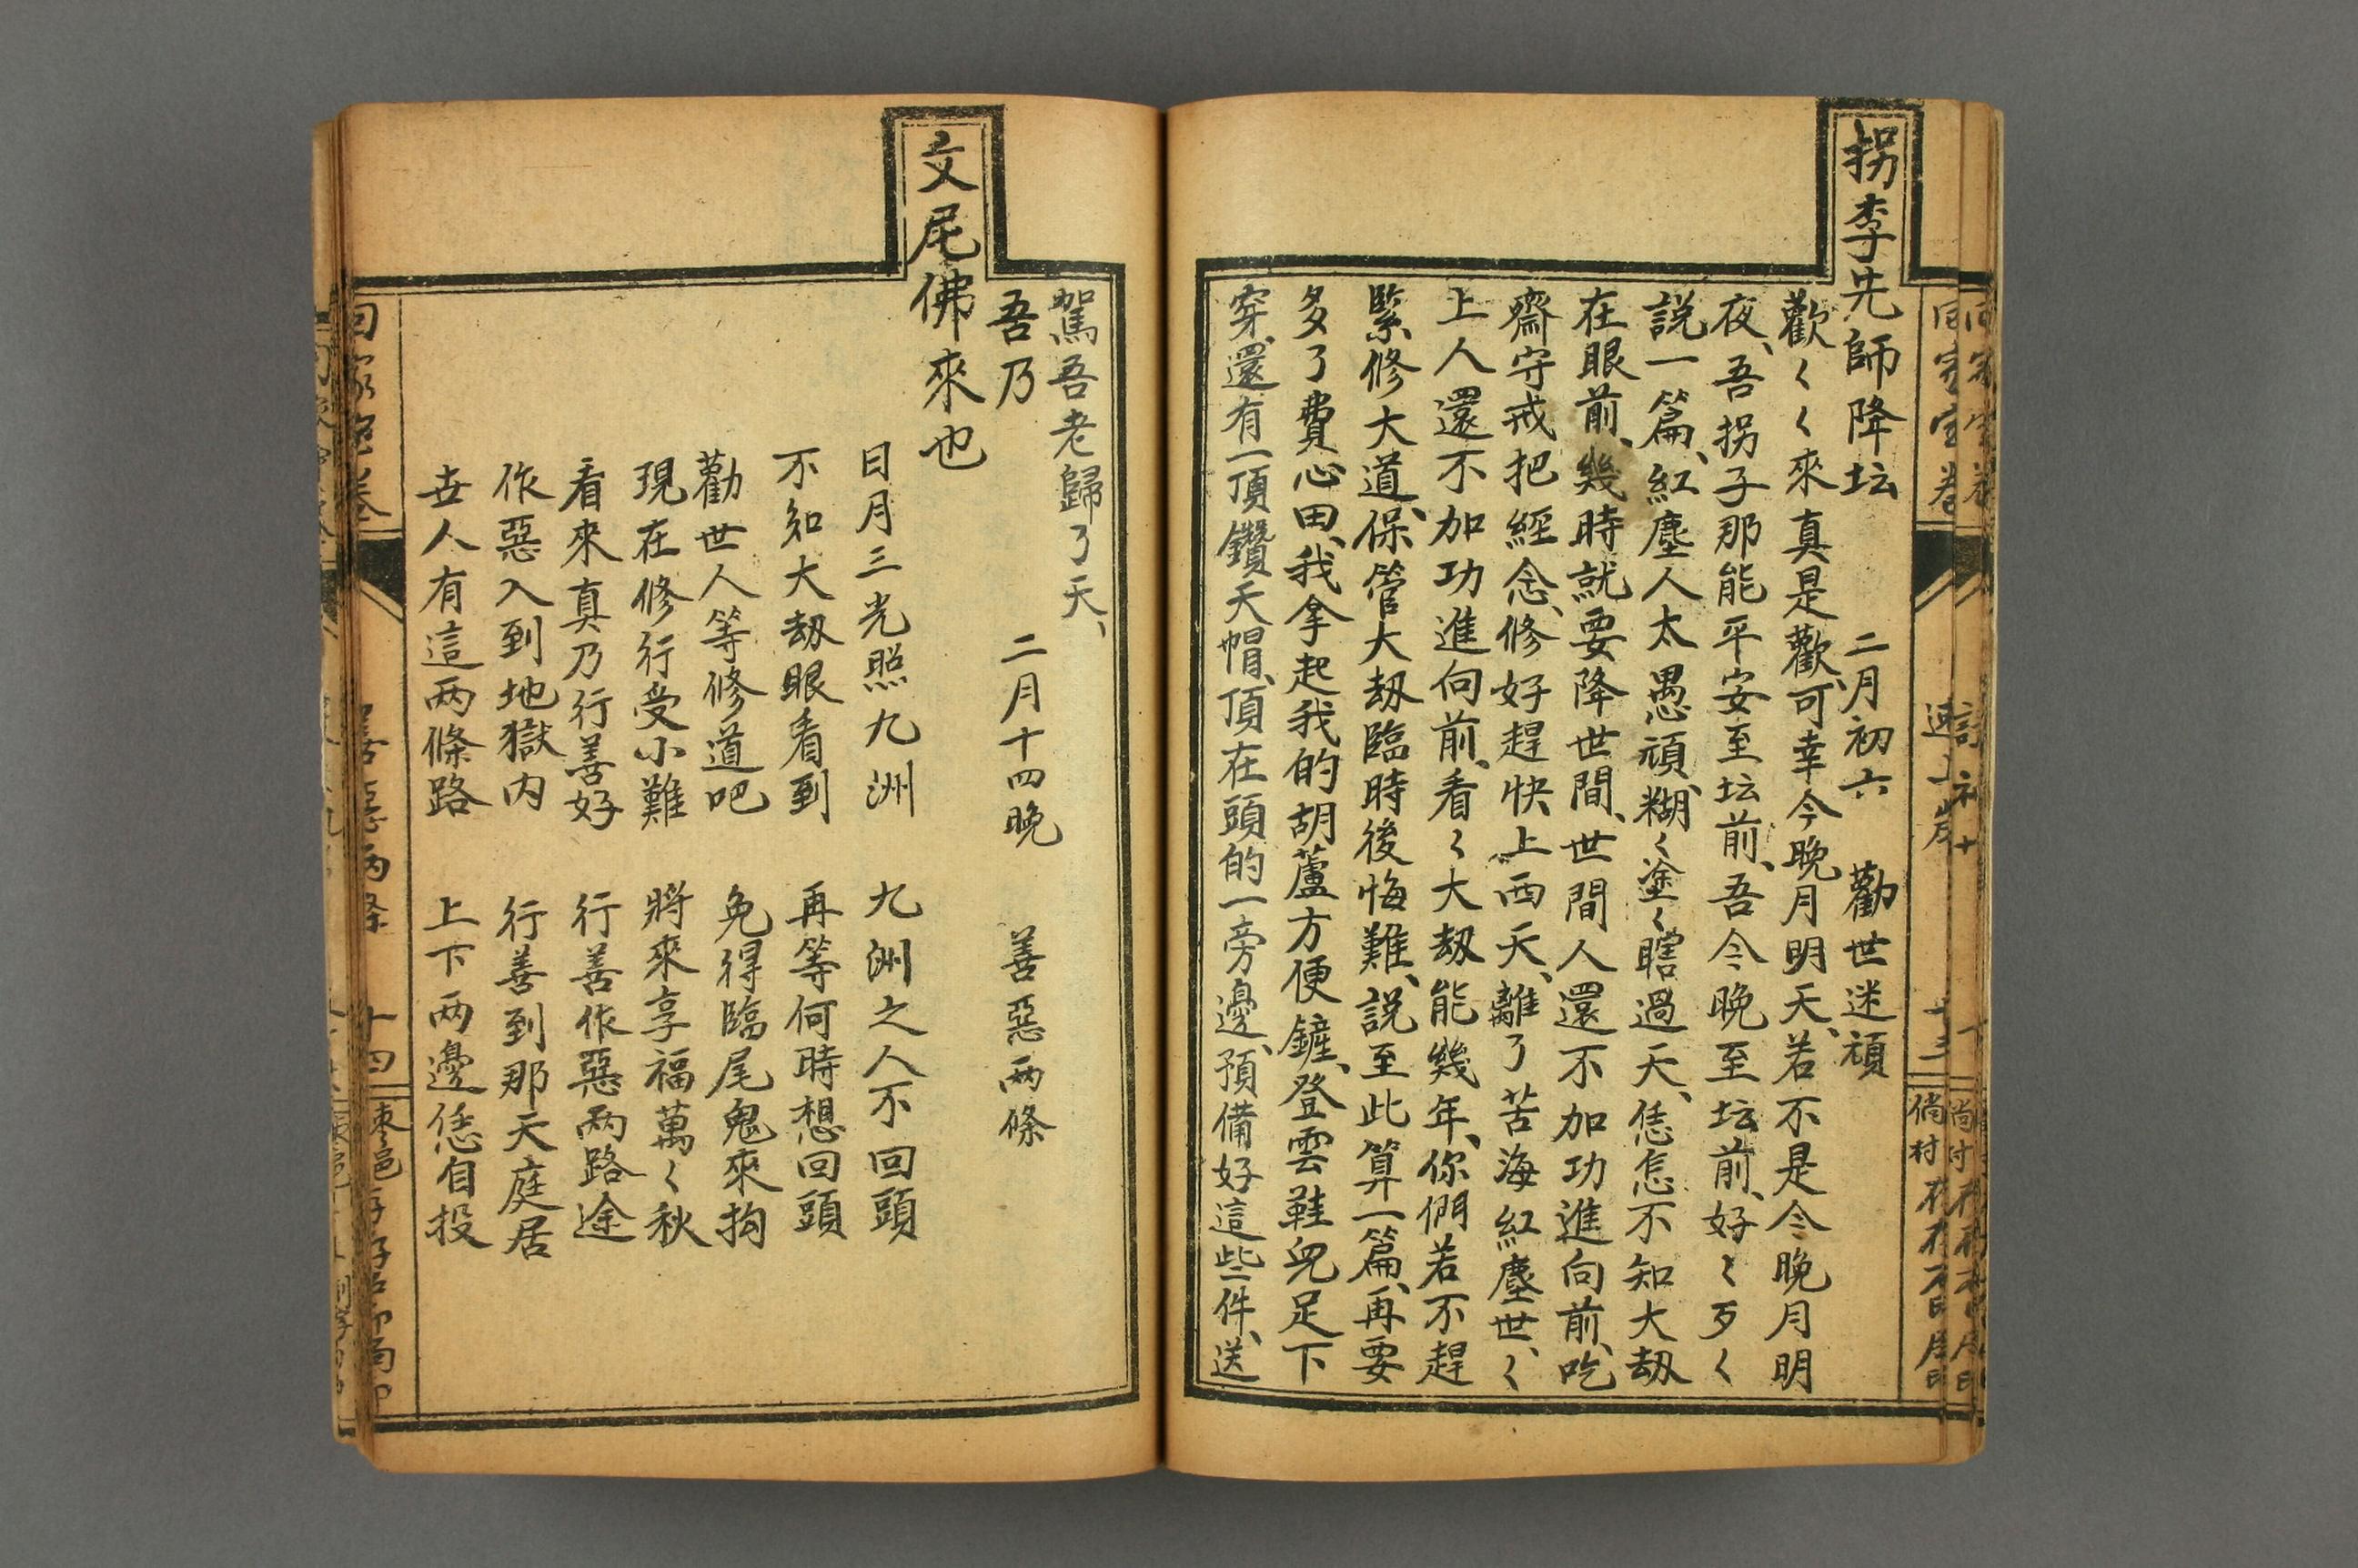 拐李先師降坛　二月初六　勸世迷頑
歡〱〱來真是歡、可幸今晚月明天、若不是今晚月明
夜、吾拐子那能平安至坛前、吾今晚至坛前、好〻歹〱
説一篇、紅塵人太愚頑、糊〱塗〱瞎過天、恁怎不知大刼
在眼前、幾時就要降世間、世間人還不加功進向前、吃
齋守戒把經念、修好趕快上西天、離了苦海紅塵世、〱
上人還不加功進向前、看〱大刼能幾年、你們若不趕
緊修大道、保管大刼臨時後悔難、説至此算一篇、再要
多了費心田、我拿起我的胡蘆方便鏟、登雲鞋兒足下
穿、還有一頂鑽天帽、頂在頭的一旁邊、預備好這些件、送
駕吾老歸了天、
吾乃　二月十四晚　善惡两條
文尾佛來也
日月三光照九洲　九洲之人不回頭
不知大刼眼看到　再等何時想回頭
勸世人等修道吧　免得臨尾鬼來拘
現在修行受小難　將來享福萬〱秋
看來真乃行善好　行善作惡两路途
作惡入到地獄内　行善到那天庭居
世人有這两條路　上下两邊恁自投